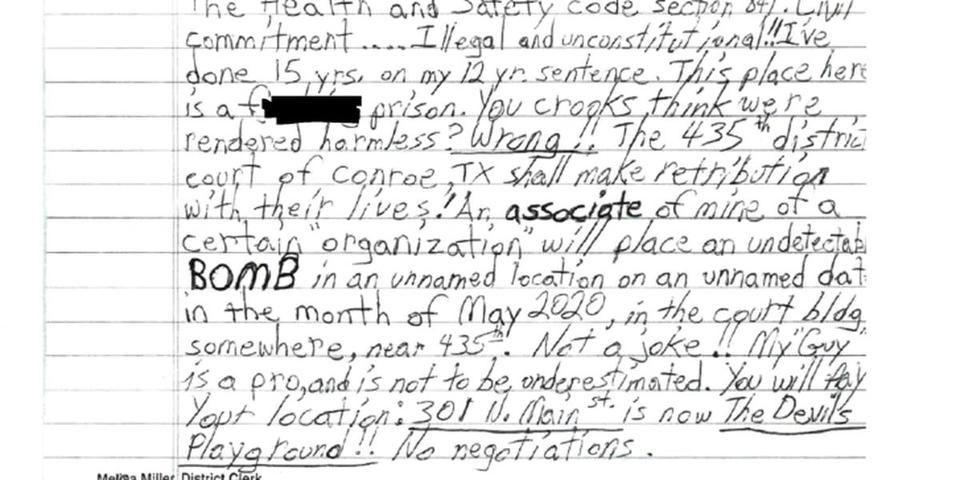 The Health and Safety Code section 841. Civil
commitment .... Illegal and unconstitutional!! I've
done 15 yrs. on my 12 yr. sentence. This place here
is a f prison. You crooks think we're
rendered harmless? Wrong!! The 435th distric
court of Conroe, TX shall make retribution
with their lives! An associate of mine of a
certain "organization" will place an undetectab
BOMB in an unnamed location on an unnamed dat
in the month of May 2020, in the court bldg.
somewhere, near 435th. Not a joke!! My "Guy"
is a pro, and is not to be underestimated. You will Pay
Your location: 301 N. Main st. is now The Devil's
Playground!! No negotiations.
Melisa Miller, District Clerk